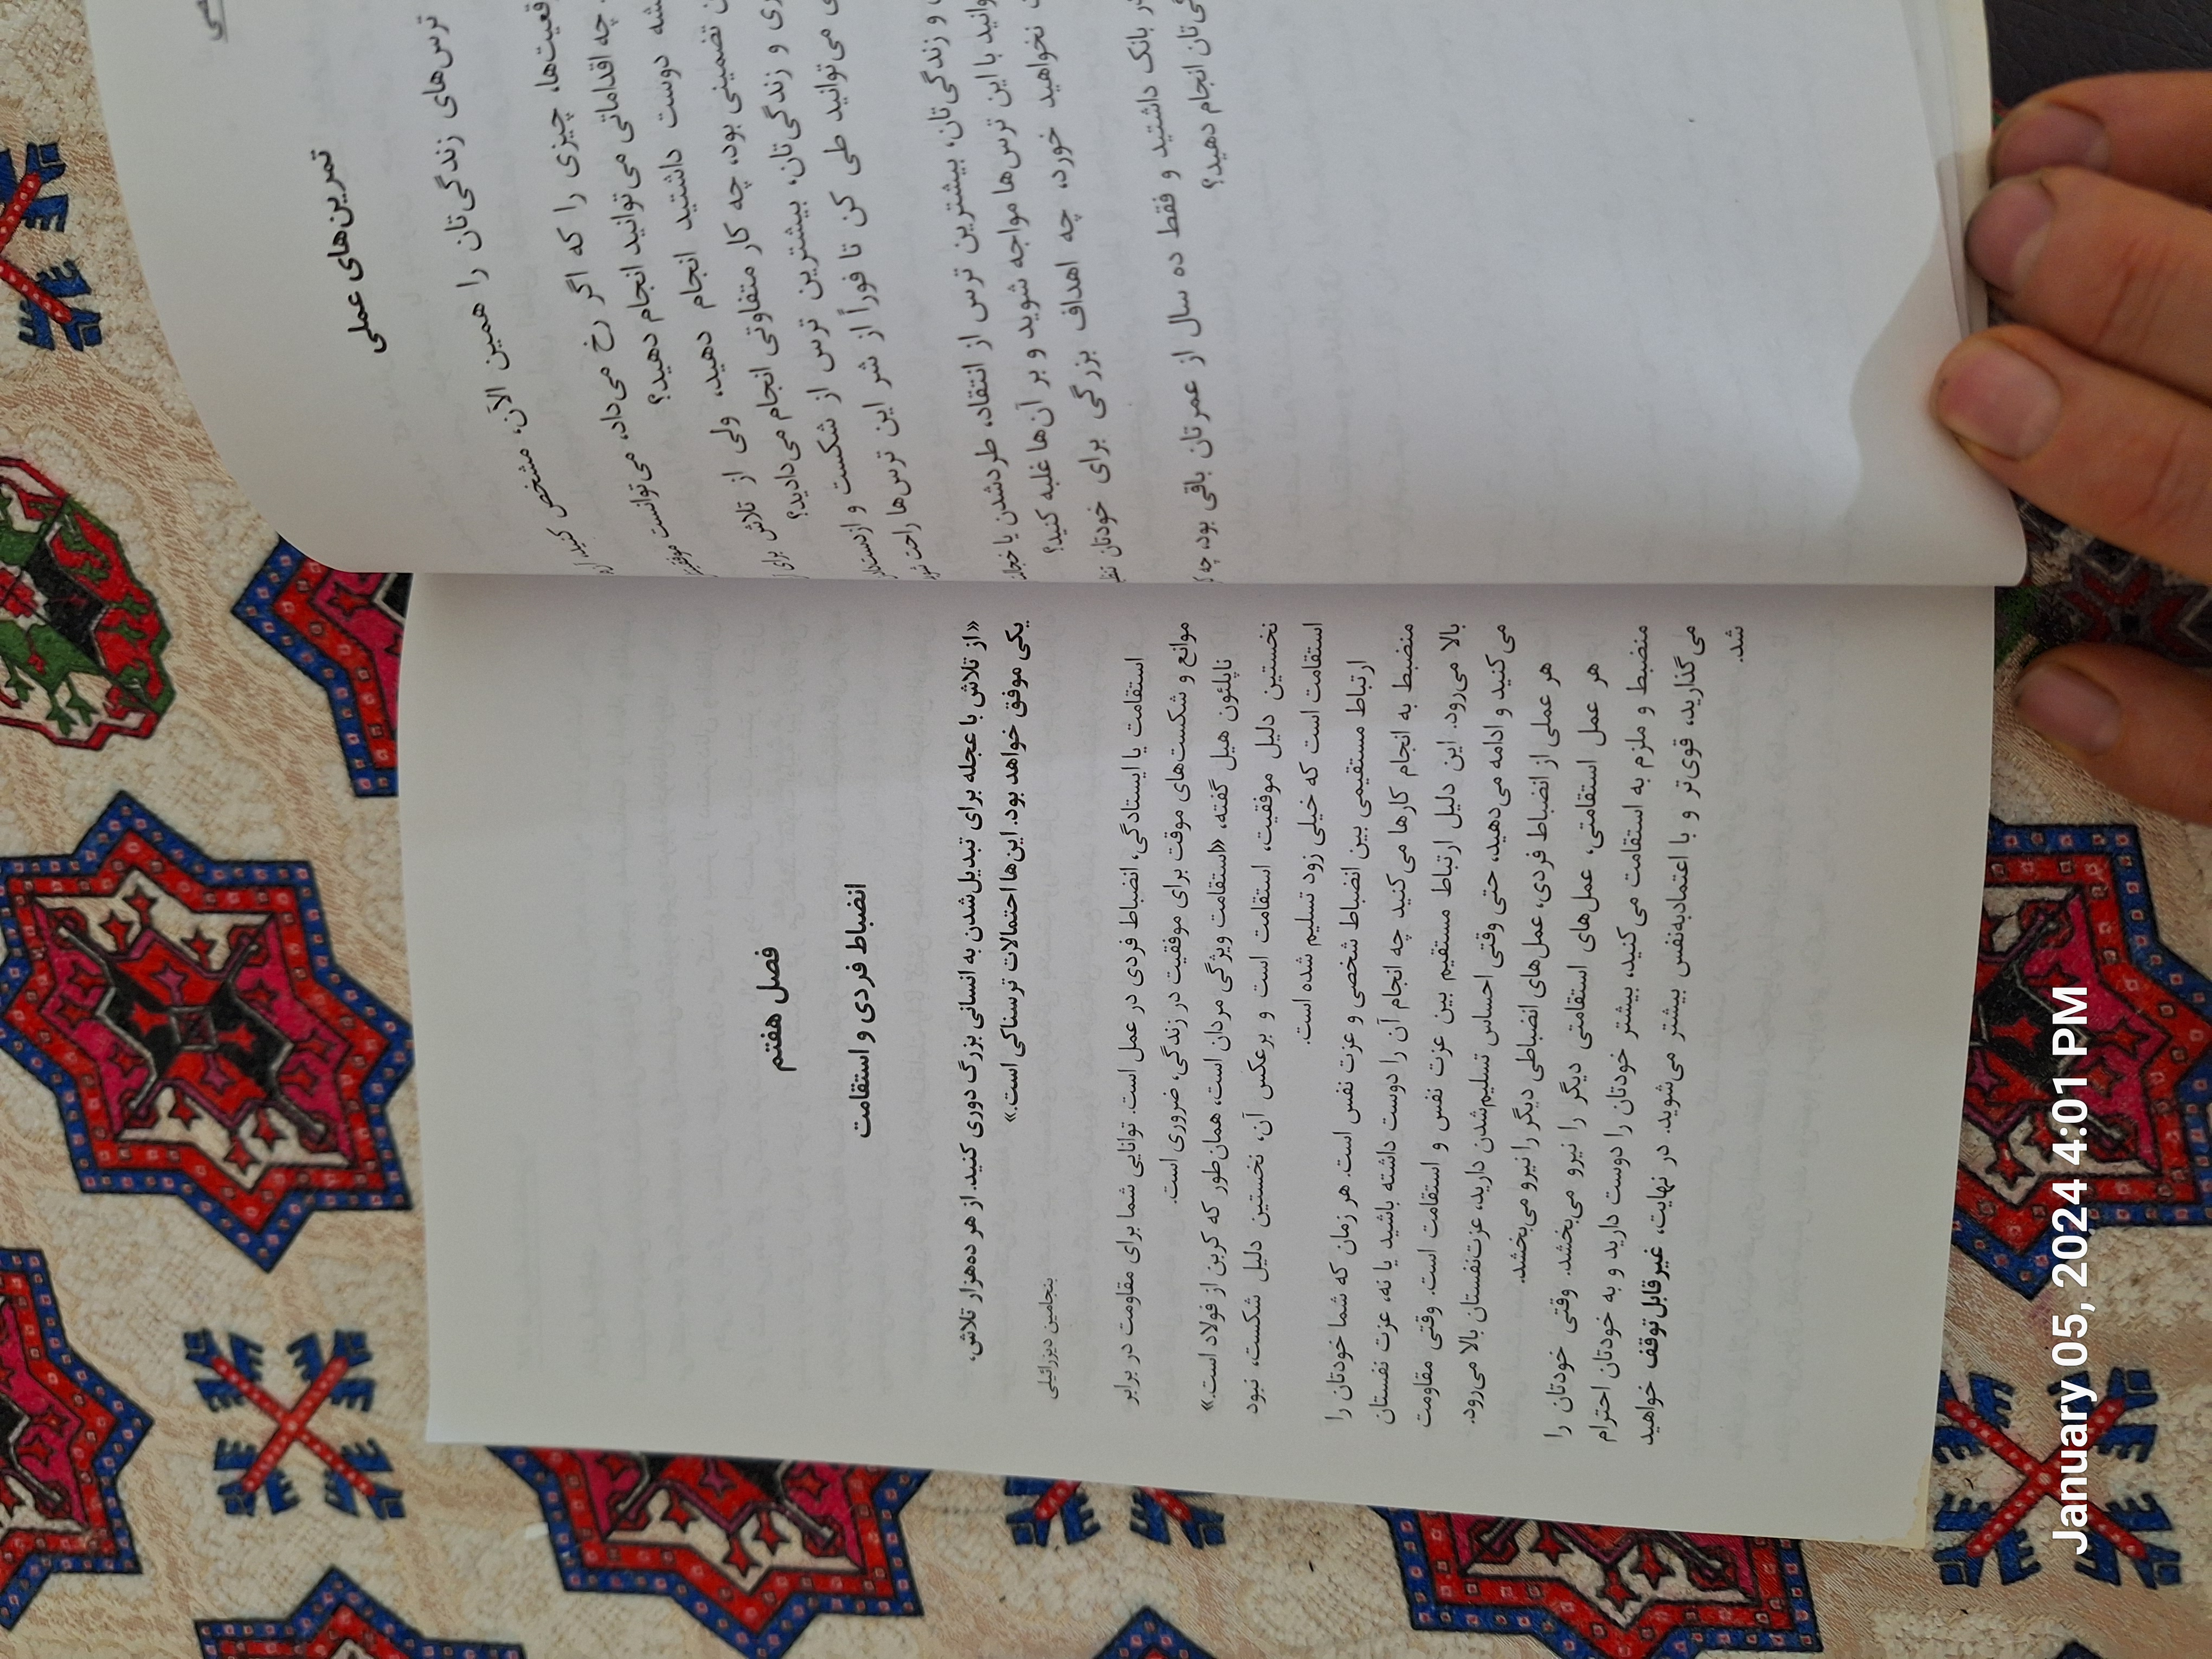 تمرین‌های عملی
ترس‌های زندگی‌تان را همین الان، مشخص کنید.
چیزی را که اگر رخ می‌داد، می‌توانست
چه اقداماتی می‌توانید انجام دهید؟
دوست داشتید انجام دهید، ولی از تلاش برای
تضمینی بود، چه کار متفاوتی انجام می‌دادید؟
و زندگی‌تان، بیشترین ترس از شکست و
می‌توانید طی کن تا فوراً از شر این ترس‌ها راحت
و زندگی‌تان، بیشترین ترس از انتقاد، طردشدن یا
با این ترس‌ها مواجه شوید و بر آن‌ها غلبه کنید؟
نخواهید خورد، چه اهداف بزرگی برای خودتان
بانک داشتید و فقط ده سال از عمرتان باقی بود، چه
انجام دهید؟
فصل هفتم
انضباط فردی و استقامت
«از تلاش با عجله برای تبدیل‌شدن به انسانی بزرگ دوری کنید. از هر ده‌هزار تلاش،
یکی موفق خواهد بود. این‌ها احتمالات ترسناکی است.»
بنجامین دیزرائیلی
استقامت یا ایستادگی، انضباط فردی در عمل است. توانایی شما برای مقاومت در برابر
موانع و شکست‌های موقت برای موفقیت در زندگی، ضروری است.
ناپلئون هیل گفته، «استقامت ویژگی مردان است، همان‌طور که کربن از فولاد است.»
نخستین دلیل موفقیت، استقامت است و برعکس آن، نخستین دلیل شکست، نبود
استقامت است که خیلی زود تسلیم شده است.
ارتباط مستقیمی بین انضباط شخصی و عزت نفس است. هر زمان که شما خودتان را
منضبط به انجام کارها می‌کنید چه انجام آن را دوست داشته باشید یا نه، عزت نفستان
بالا می‌رود. این دلیل ارتباط مستقیم بین عزت نفس و استقامت است. وقتی مقاومت
می‌کنید و ادامه می‌دهید، حتی وقتی احساس تسلیم‌شدن دارید، عزت‌نفستان بالا می‌رود.
هر عملی از انضباط فردی، عمل‌های انضباطی دیگر را نیرو می‌بخشد.
هر عمل استقامتی، عمل‌های استقامتی دیگر را نیرو می‌بخشد. وقتی خودتان را
منضبط و ملزم به استقامت می‌کنید، بیشتر خودتان را دوست دارید و به خودتان احترام
می‌گذارید، قوی‌تر و با اعتمادبه‌نفس بیشتر می‌شوید. در نهایت، غیرقابل‌توقف خواهید
شد.
January 05, 2024 4:01 PM